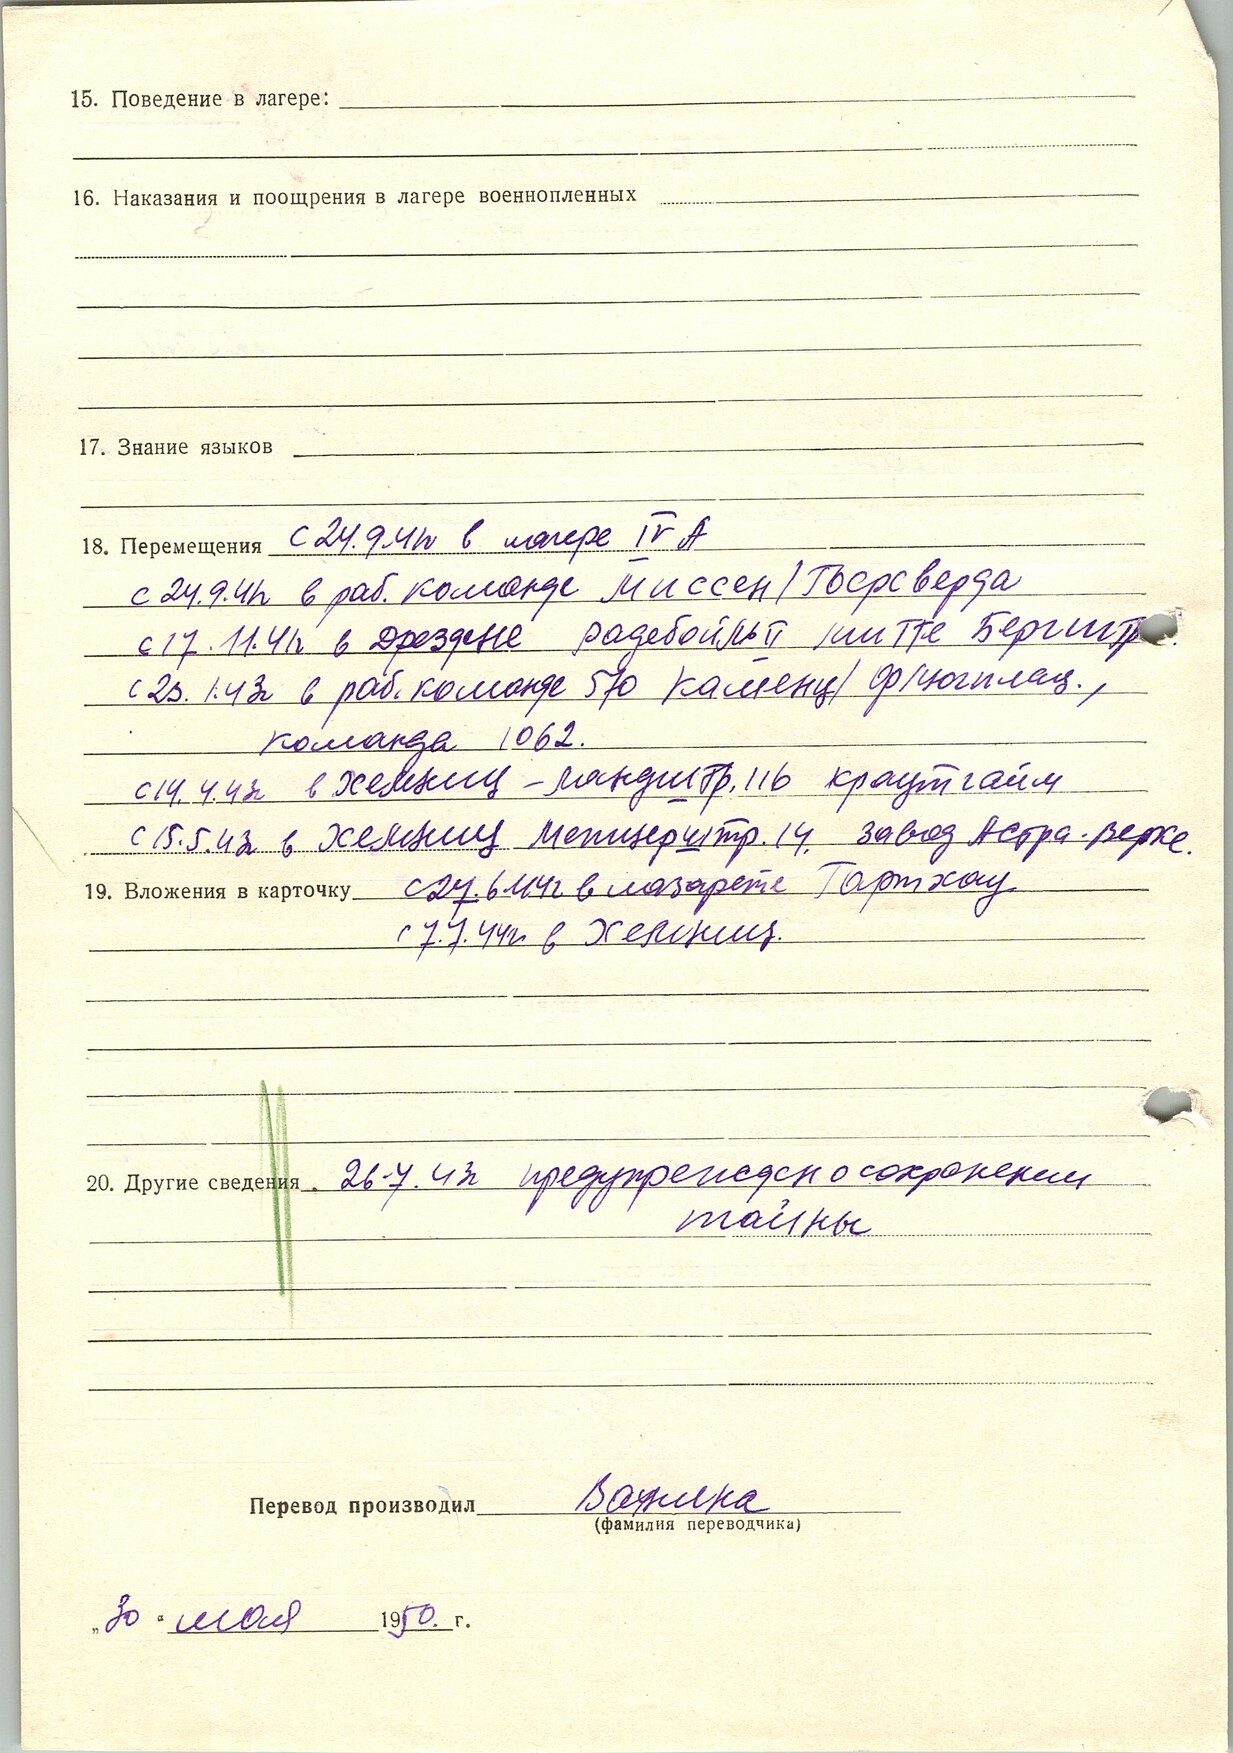 15. Поведение в лагере:
16. Наказания и поощрения в лагере военнопленных
17. Знание языков
18. Перемещения с 24.9.41г в лагере IV А
с 24.9.41г в раб. команде Миссен/Гоерсверда
с 17.11.41г в Дрездене Радебойль II Бергштр.
с 1.43г в раб. команде 570 Каменц/
команда 1062.
с 14.4.43г в Хемниц – Ландштр. 116 Краутгайм
с 15.5.43г в Хемниц Метцнерштр. 14. завод Астра-Верке.
19. Вложения в карточку с 27.6.44г в лазарете Гартхау
с 7.7.44г в Хемниц.
20. Другие сведения 26.7.43г предупрежден о сохранении
тайны
Перевод производил
(фамилия переводчика)
„30“ мая 1950. г.